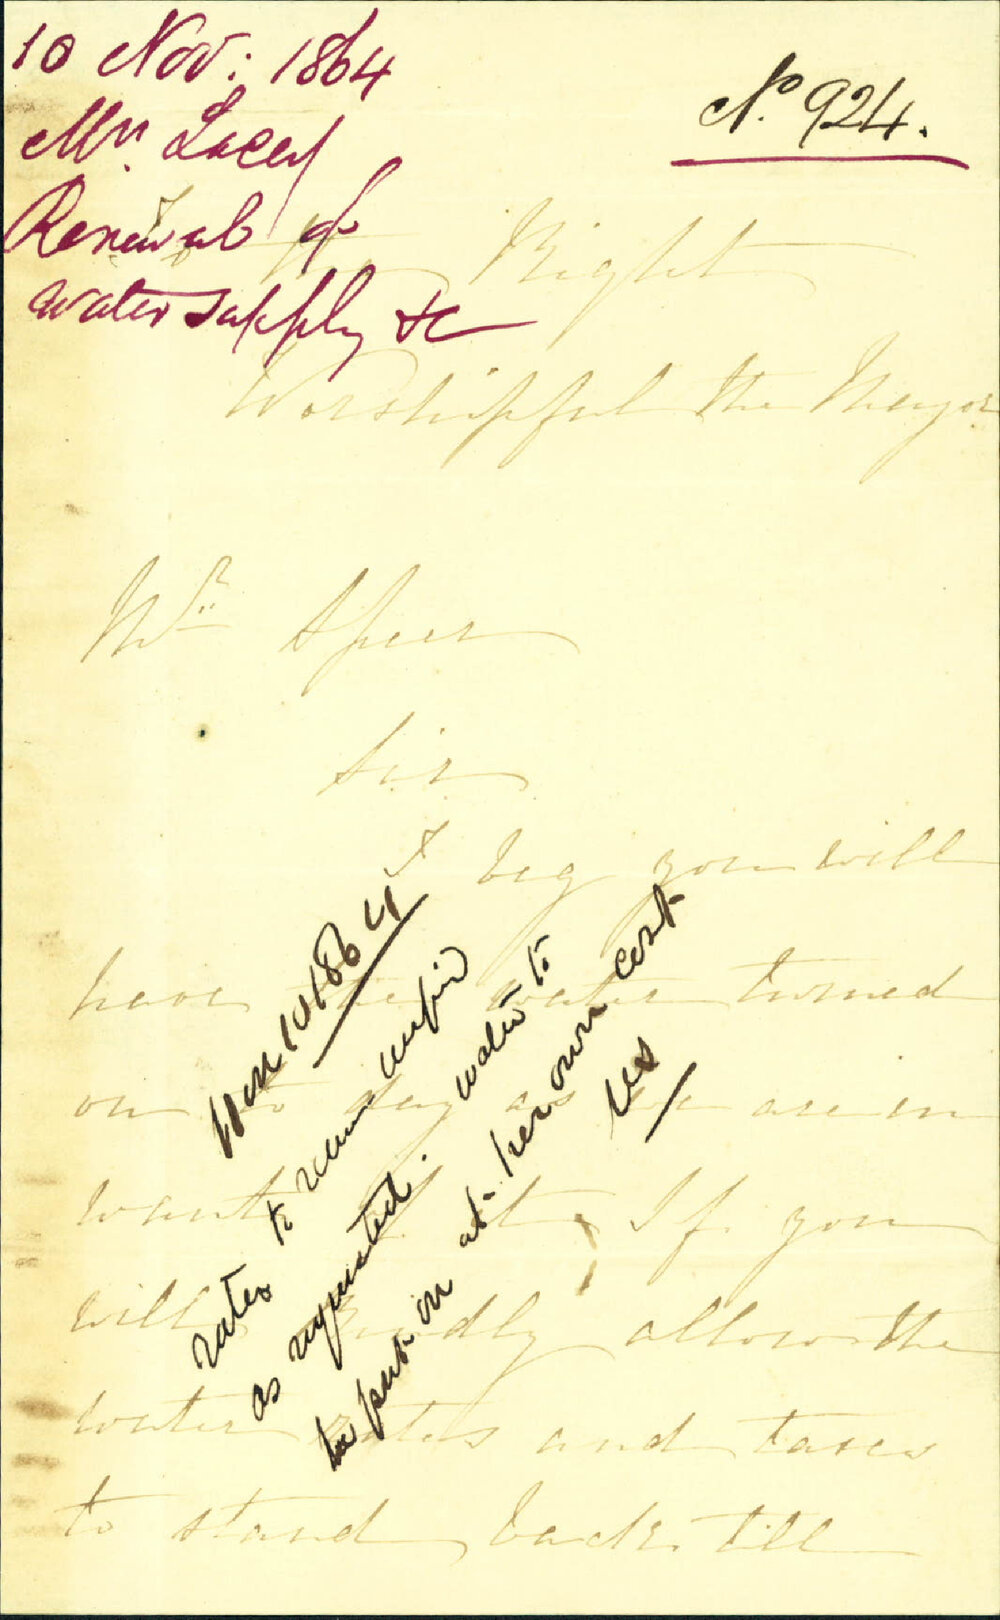 10 Nov: 1864
Mrs. Lacey
Renewal of
water supply &c
No. 924.
To
The Right
Worshipful the Mayor
Mr Speer
Sir
I beg you will
have the water turned
on to day as we are in
want of it. If you
will kindly allow the
water rates and taxes
to stand back till
10 1864
rates to remain unpaid
as requested. water to
be put on at her own cost